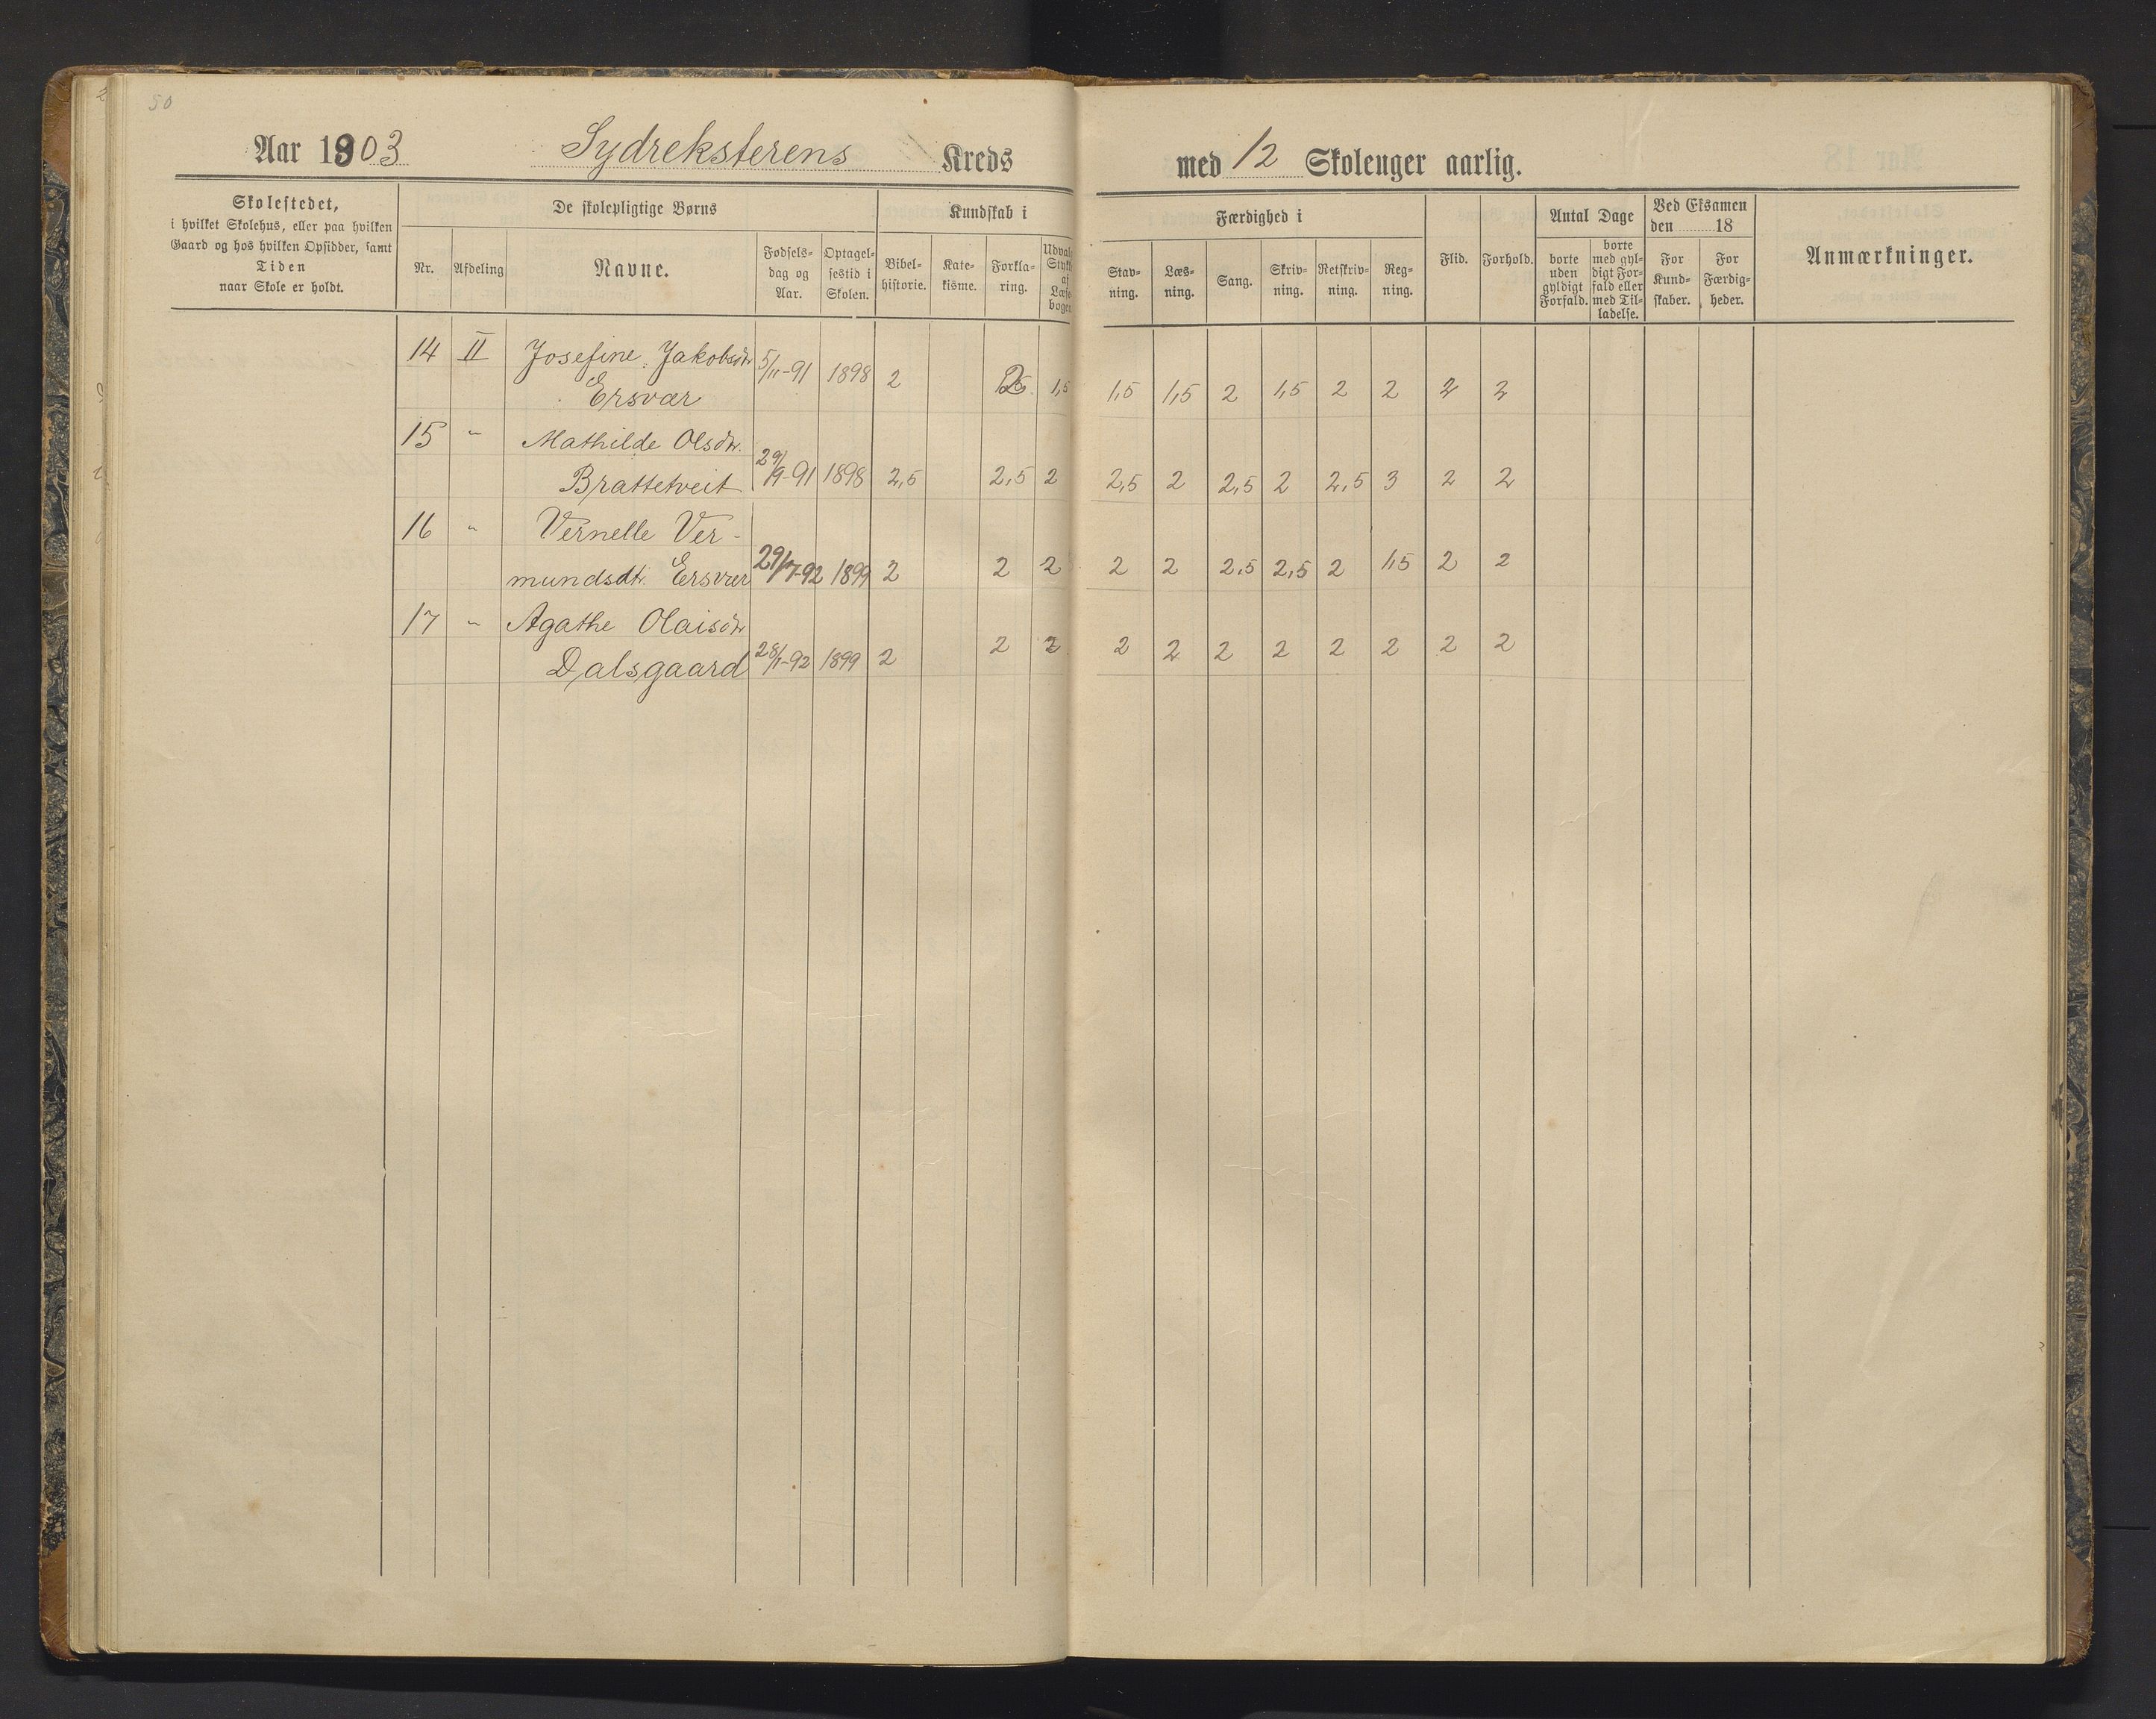 50
Aar 1903 Sydreksterens Kreds med 12 Skoleuger aarlig.
Skolestedet,
i hvilket Skolehus, eller paa hvilken
Gaard og hos hvilken Opsidder, samt
Tiden
naar Skole er holdt.
De skolepligtige Børns
Nr.
Afdeling
Navne.
Fødsels-
dag og
Aar.
Optagel-
sestid i
Skolen.
Kundskab i
Bibel-
historie.
Kate-
kisme.
Forkla-
ring.
Udvalg
Stykk
af
Læse-
bogen
Færdighed i
Stav-
ning.
Læs-
ning.
Sang.
Skriv-
ning.
Retskriv-
ning.
Reg-
ning.
Flid.
Forhold.
Antal Dage
borte
uden
gyldigt
Forfald.
borte
med gyl-
digt For-
fald eller
med Til-
ladelse.
Ved Eksamen
den 18
For
Kund-
skaber.
For
Færdig-
heder.
Anmærkninger.
14 II Josefine Jakobsdtr
Ersvær 5/11-91 1898 2 1,5 1,5 1,5 2 1,5 2 2 2 2
15 " Mathilde Olsdtr.
Brattetveit 29/9-91 1898 2,5 2,5 2 2,5 2 2,5 2 2,5 3 2 2
16 " Vernelle Ver-
mundsdtr. Ersvær 29/7-92 1899 2 2 2 2 2 2,5 2,5 2 1,5 2 2
17 " Agathe Olaisdtr
Dalsgaard 28/1-92 1899 2 2 2 2 2 2 2 2 2 2 2